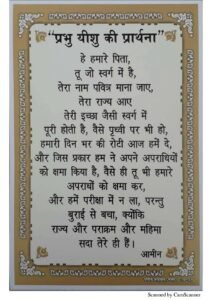 “प्रभु यीशु की प्रार्थना”
हे हमारे पिता,
तू जो स्वर्ग में है,
तेरा नाम पवित्र माना जाए,
तेरा राज्य आए
तेरी इच्छा जैसी स्वर्ग में
पूरी होती है, वैसे पृथ्वी पर भी हो,
हमारी दिन भर की रोटी आज हमें दे,
और जिस प्रकार हम ने अपने अपराधियों
को क्षमा किया है, वैसे ही तू भी हमारे
अपराधों को क्षमा कर,
और हमें परीक्षा में न ला, परन्तु
बुराई से बचा, क्योंकि
राज्य और पराक्रम और महिमा
सदा तेरे ही हैं।
आमीन
Scanned by CamScanner